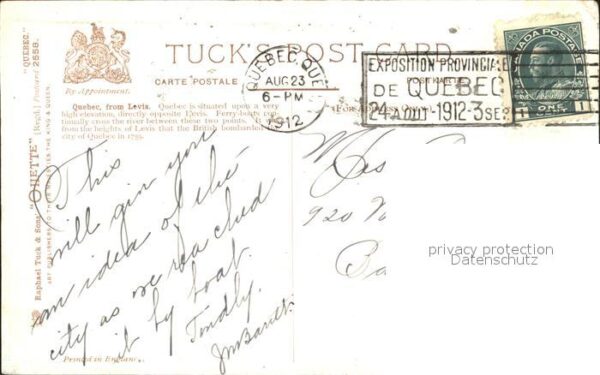 "QUEBEC."
Postcard 2558.
(Regd.)
"OILETTE"
Raphael Tuck & Sons'
ART PUBLISHERS TO THEIR MAJESTIES THE KING & QUEEN.
By Appointment.
TUCK'S POST CARD
CARTE POSTALE
POSTKARTE
Quebec, from Levis. Quebec is situated upon a very
high elevation, directly opposite Levis. Ferry-boats con-
tinually cross the river between these two points. It
from the heights of Levis that the British bombarded
city of Quebec in 1759.
FOR ADDRESS ONLY
QUEBEC, QUE
AUG 23
6-PM
1912
EXPOSITION PROVINCIALE
DE QUEBEC
24 AOUT-1912-3 SEP
CANADA POSTAGE
1 ONE 1
CENT
This
will give you
an idea of the
city as we reached
it by boat.
Fondly.
920
privacy protection
Datenschutz
Printed in England.